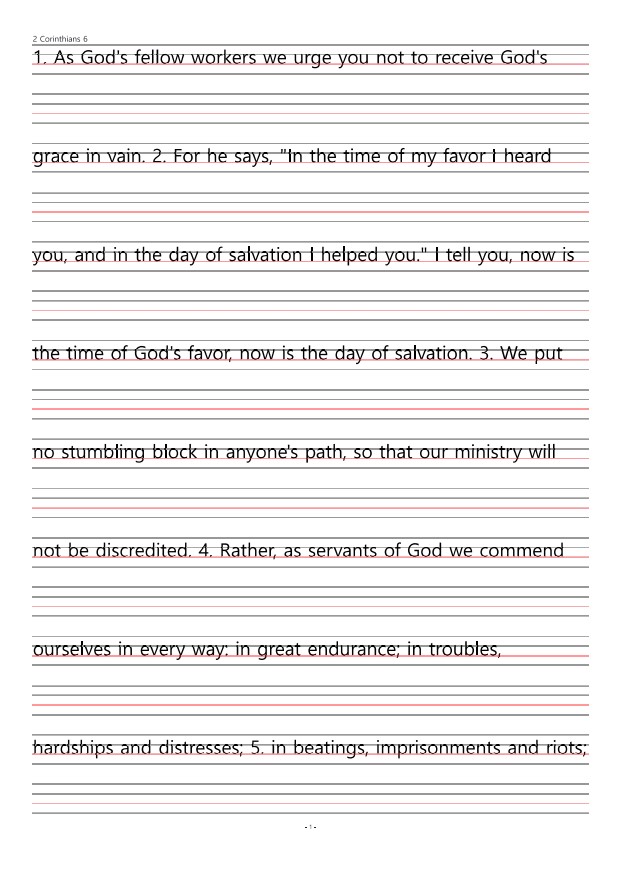 2 Corinthians 6
1. As God's fellow workers we urge you not to receive God's
grace in vain. 2. For he says, "In the time of my favor I heard
you, and in the day of salvation I helped you." I tell you, now is
the time of God's favor, now is the day of salvation. 3. We put
no stumbling block in anyone's path, so that our ministry will
not be discredited. 4. Rather, as servants of God we commend
ourselves in every way: in great endurance; in troubles,
hardships and distresses; 5. in beatings, imprisonments and riots;
- 1 -